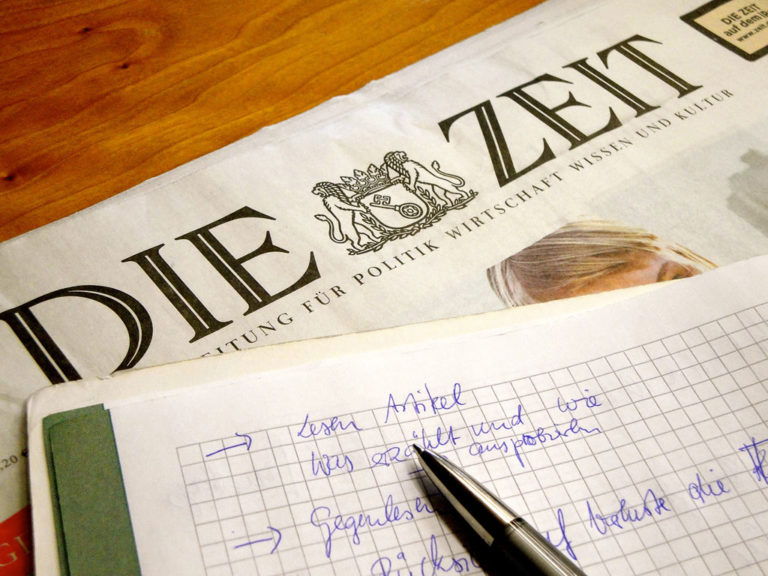 DIE ZEIT
DIE ZEIT
auf dem iP
www.zeit.
EITUNG FÜR POLITIK WIRTSCHAFT WISSEN UND KULTUR
→ Lesen Artikel
Was erzählt und wie
ausprobieren
→ Gegenlesen
Rücksi auf die